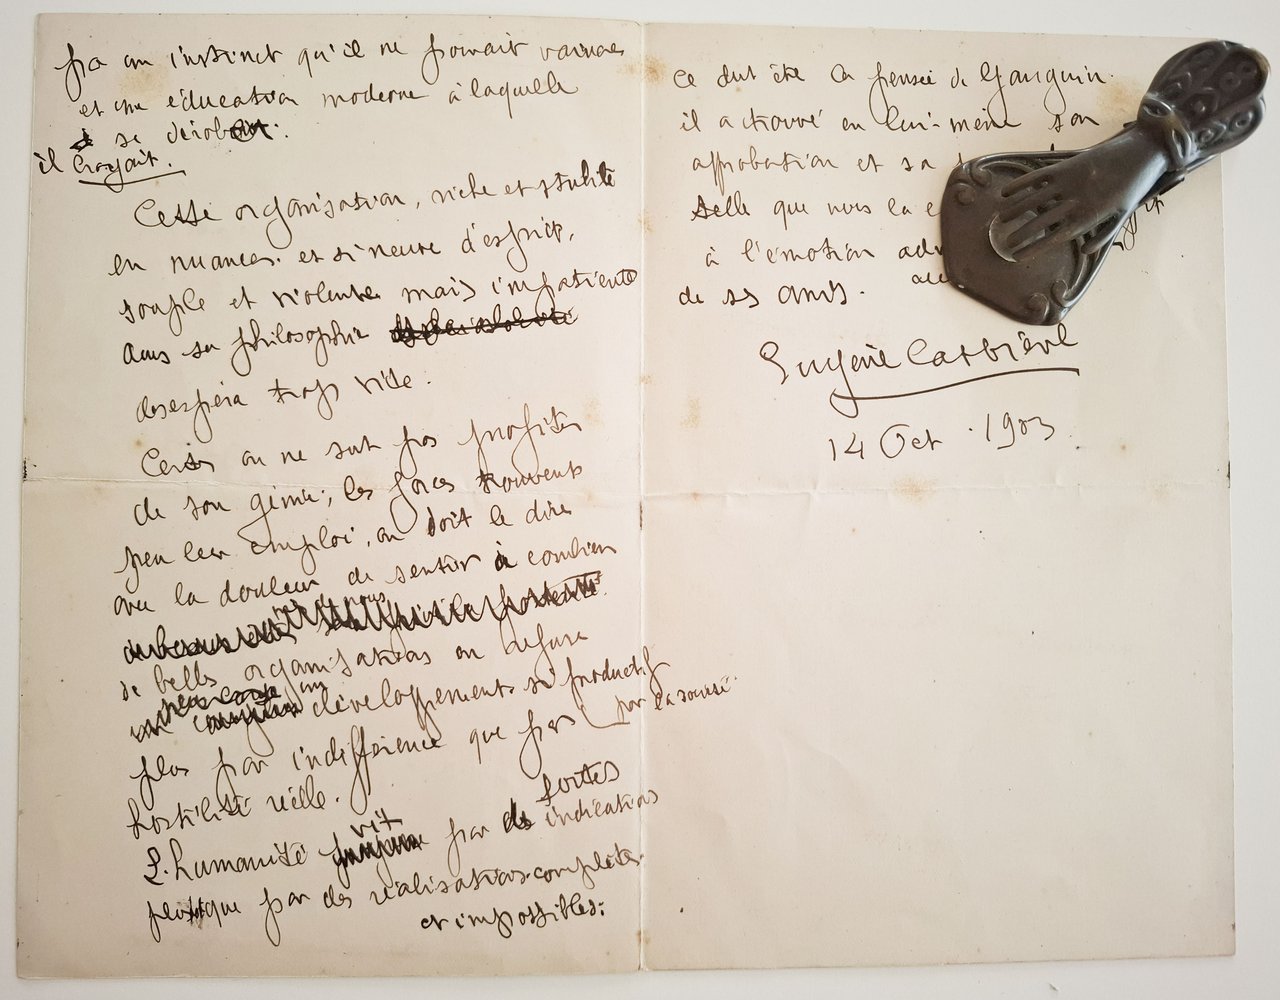 par un instinct qu'il ne pouvait vaincre
et une éducation moderne à laquelle
se dérober.
il croyait.
Cette organisation, riche et subtile
en nuances. et si neuve d'esprit,
souple et violente mais impatiente
dans sa philosophie
desespéra trop vite.
Certes on ne sut pas profiter
de son génie, les forces trouvent
peu leur emploi, on doit le dire
avec la douleur de sentir à combien
de belles organisations on refuse
un développement si productif
par la société.
plus par indifférence que par
hostilité réelle.
fortes
L'humanité vit par des indications
plutôt que par des réalisations complètes
et impossibles.
Ce dut être la pensée de Gauguin.
il a trouvé en lui-même son
approbation et sa
telle que nous la
à l'émotion
de ses amis.
Eugène Carrière
14 Oct. 1903